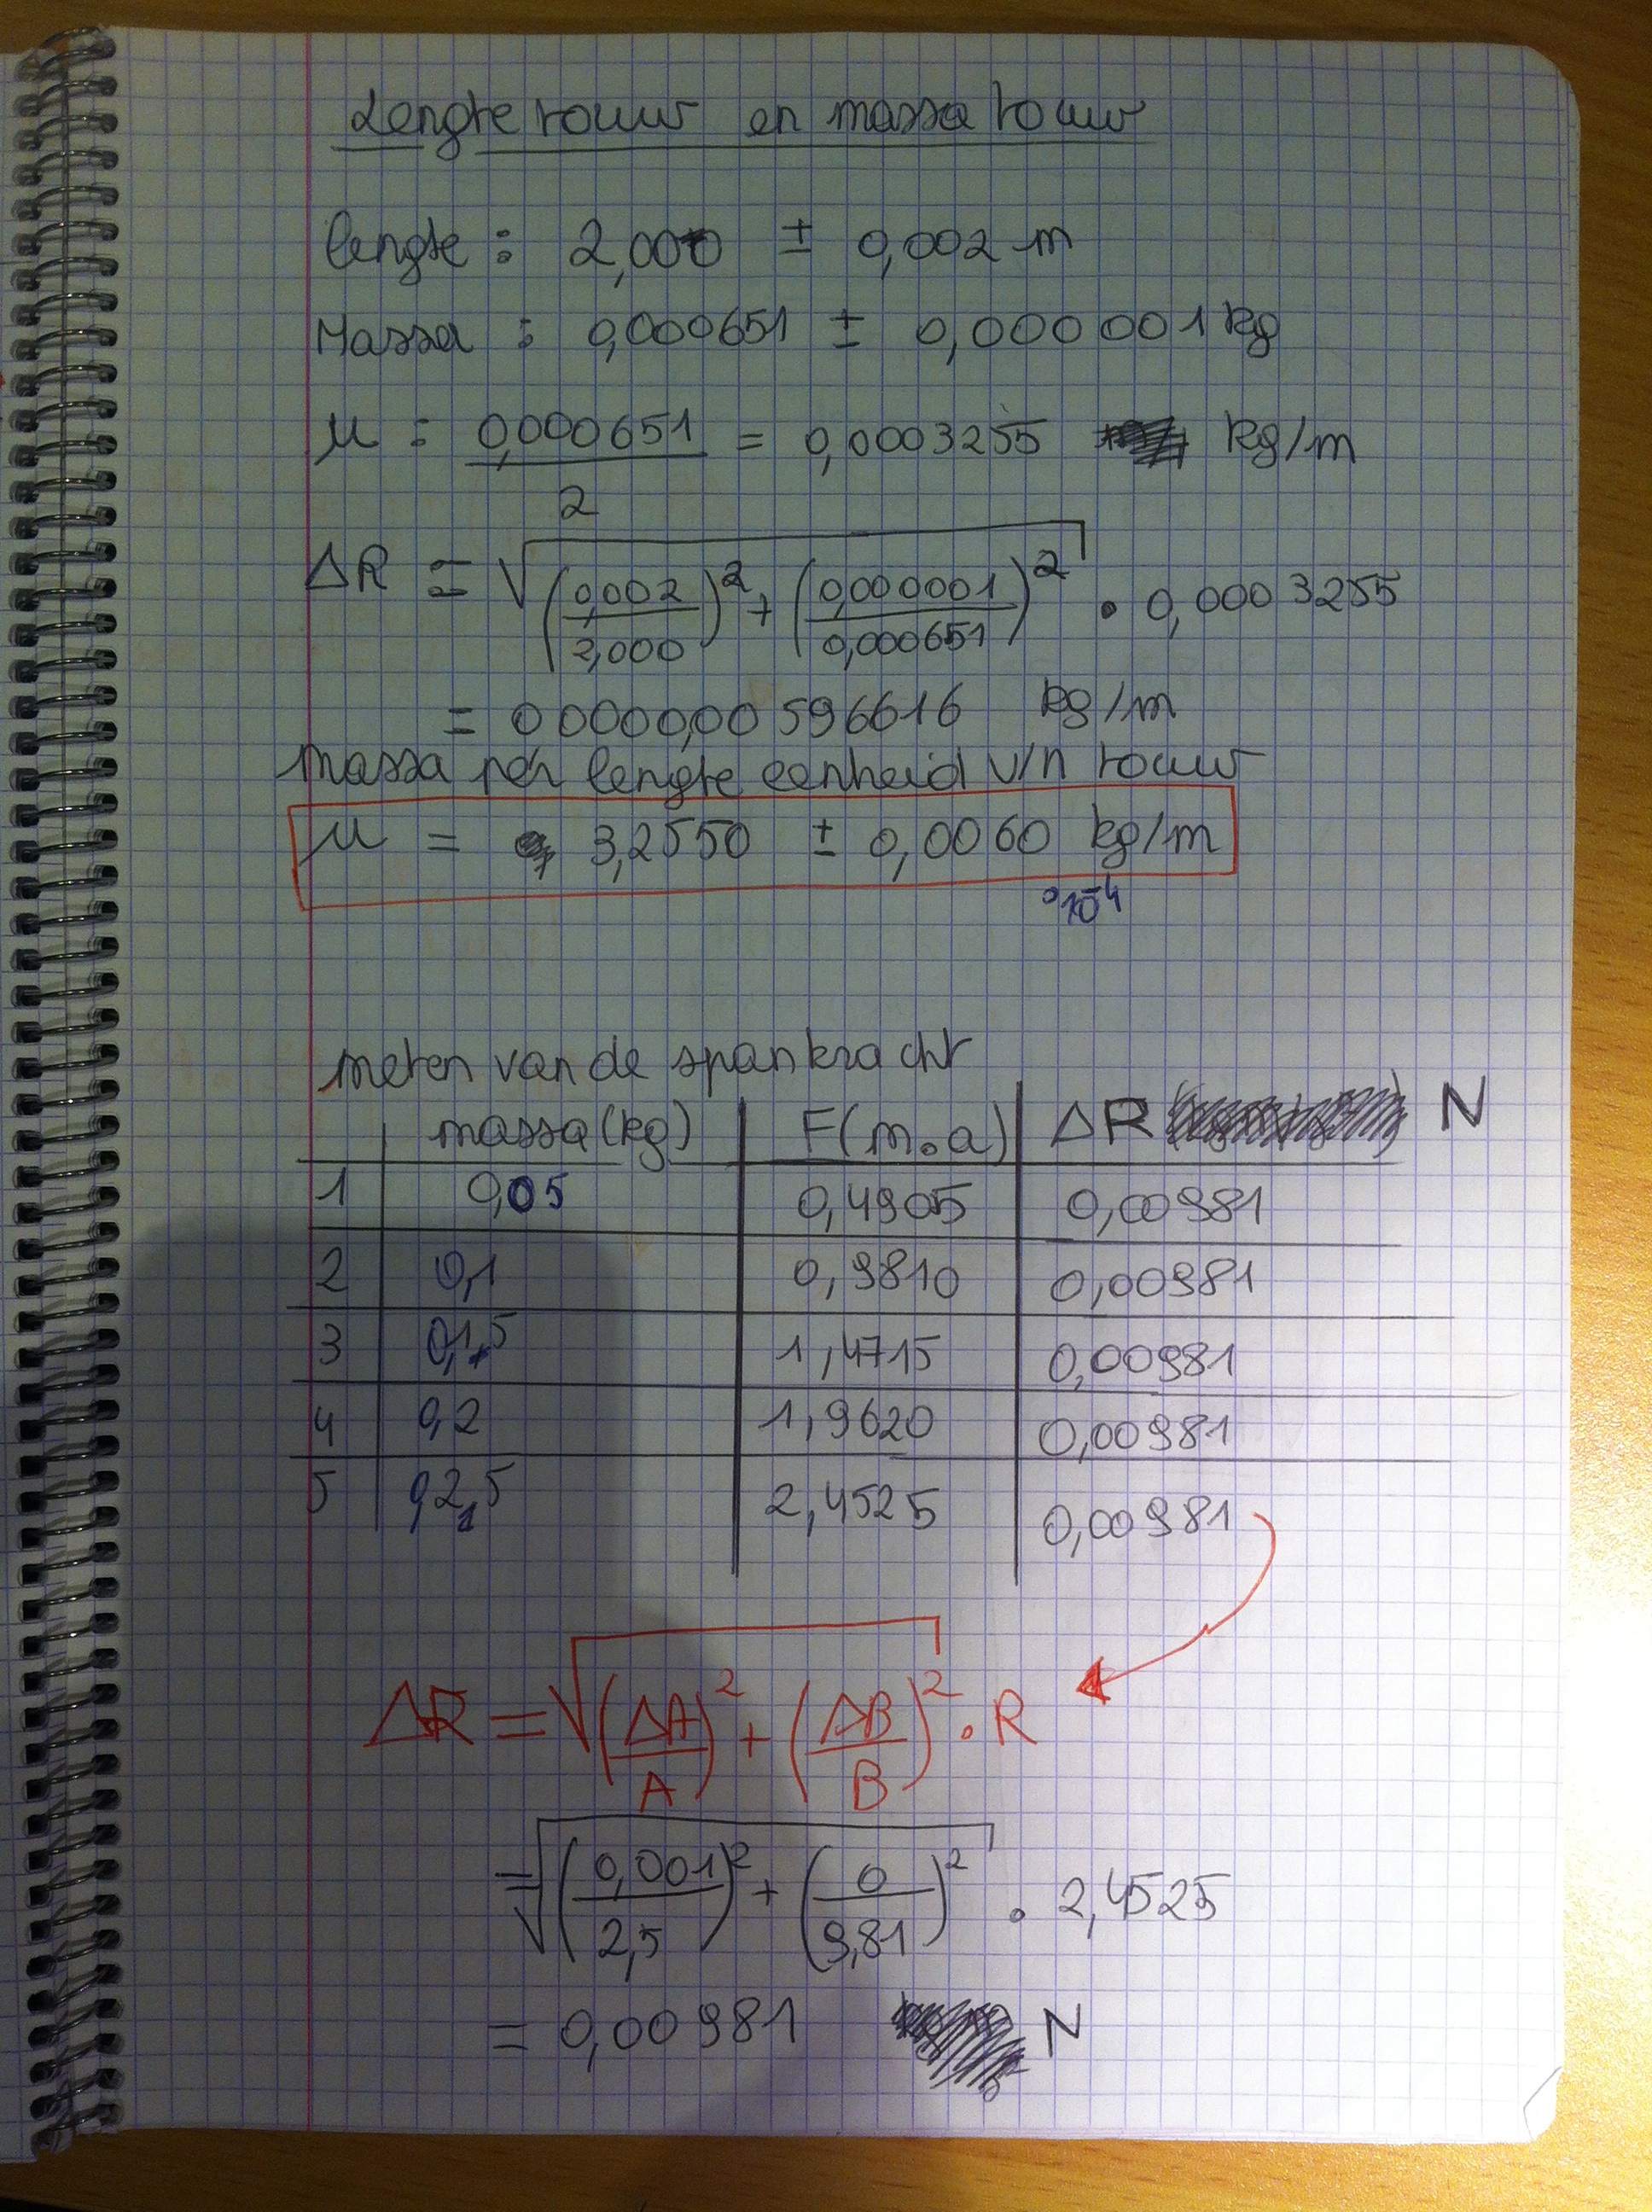 Lengte touw en massa touw
lengte : 2,000 ± 0,002 m
Massa : 0,000651 ± 0,000001 kg
μ : 0,000651 / 2 = 0,0003255 kg/m
ΔR = √((0,002/2,000)² + (0,000001/0,000651)²) • 0,0003255
= 0000000596616 kg/m
massa per lengte eenheid v/h touw
μ = 3,2550 ± 0,0060 kg/m
•10⁻⁴
meten van de spankracht
massa (kg) F(m.a) ΔR N
1 0,05 0,4905 0,00981
2 0,1 0,9810 0,00981
3 0,15 1,4715 0,00981
4 0,2 1,9620 0,00981
5 0,25 2,4525 0,00981
ΔR = √((ΔA/A)² + (ΔB/B)²) • R
= √((0,001/2,5)² + (0/9,81)²) • 2,4525
= 0,00981 N